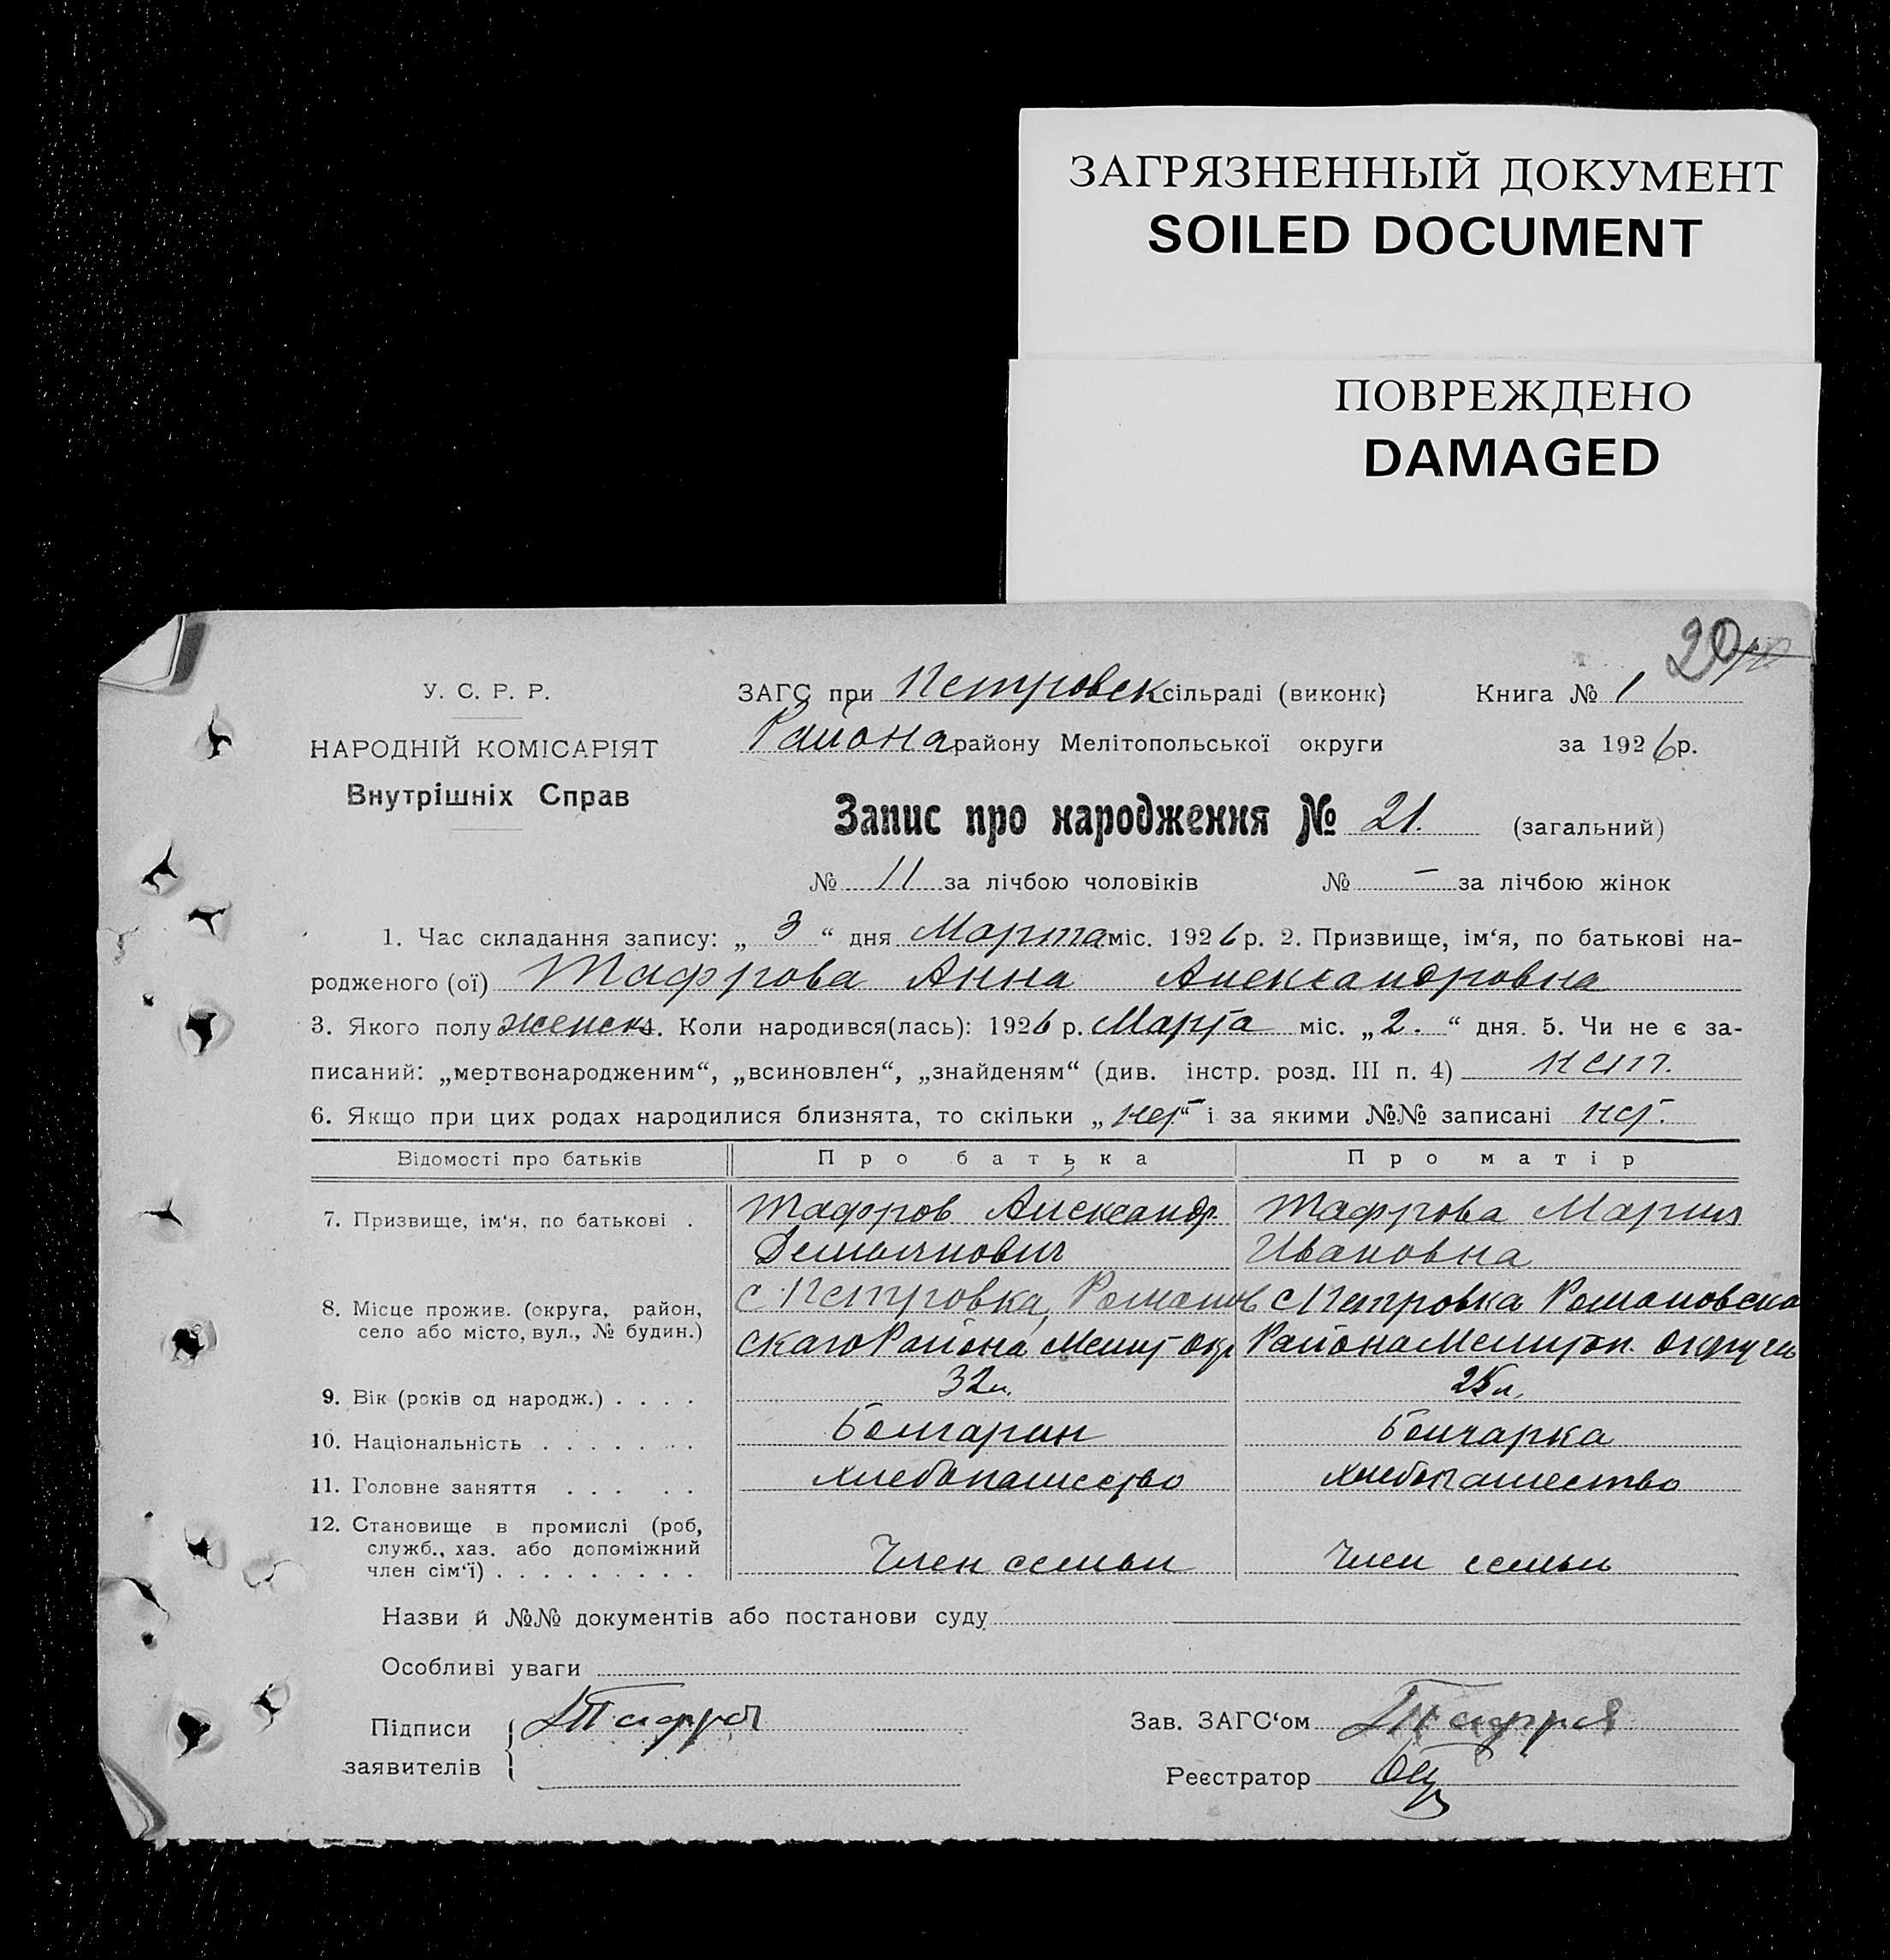 ЗАГРЯЗНЕННЫЙ ДОКУМЕНТ
SOILED DOCUMENT
ПОВРЕЖДЕНО
DAMAGED
20
У. С. Р. Р.
НАРОДНІЙ КОМІСАРІЯТ
Внутрішніх Справ
ЗАГС при Петровск сільраді (виконк) Книга № 1
Района району Мелітопольської округи за 1926 р.
Запис про народження № 21. (загальний)
№ 11 за лічбою чоловіків № – за лічбою жінок
1. Час складання запису: „ 3 “ дня Марта міс. 1926 р. 2. Призвище, ім‘я, по батькові на-
родженого (ої) Тафрова Анна Александровна
3. Якого полу женск. Коли народився(лась): 1926 р. Марта міс. „2.“ дня. 5. Чи не є за-
писаний: „мертвонародженим“, „всиновлен“, „знайденям“ (див. інстр. розд. III п. 4) нет.
6. Якщо при цих родах народилися близнята, то скільки „нет“ і за якими №№ записані нет.
Відомості про батьків Про батька Про матір
7. Призвище, ім‘я, по батькові . Тафров Александр. Тафрова Мария
Демьянович Ивановна
8. Місце прожив. (округа, район, с Петровка, Романов с Петровка Романовска
село або місто, вул., № будин.) скаго Района Мелит Окр Района Мелитоп. округи
9. Вік (років од народж.) . . . . 32 л. 25 л.
10. Національність . . . . . . . Болгарин Болгарка
11. Головне заняття . . . . . хлебопашество хлебопашество
12. Становище в промислі (роб,
служб., хаз. або допоміжний
член сім‘ї) . . . . . . . . . Член семьи Член семьи
Назви й №№ документів або постанови суду
Особливі уваги
Підписи
заявителів
Зав. ЗАГС‘ом
Реєстратор